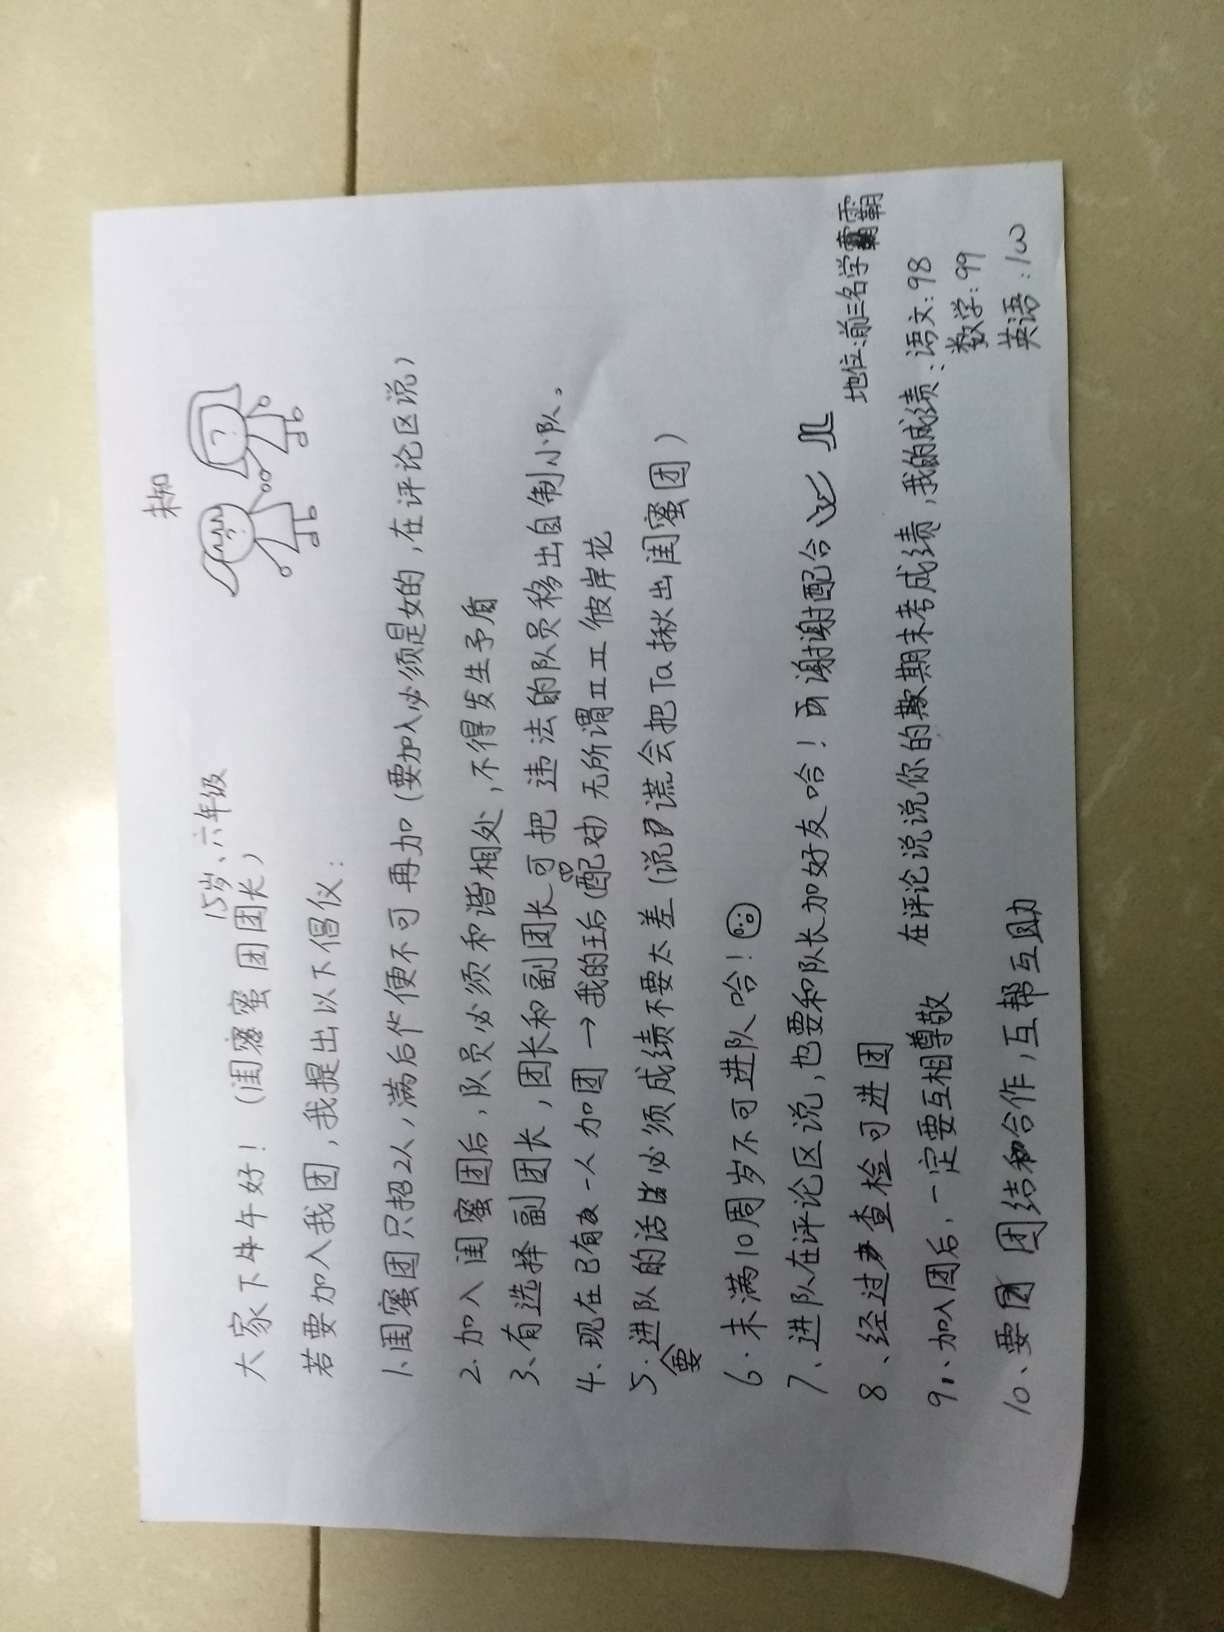 未知
15岁、六年级
大家下午好！（闺蜜团团长）
若要加入我团，我提出以下倡仪：
1、闺蜜团只招2人，满后便不可再加（要加入必须是女的，在评论区说）
2、加入闺蜜团后，队员必须和谐相处，不得发生予盾
3、有选择副团长，团长和副团长可把违法的队员移出自制小队。
4、现在已有一人加团→我的王后（配对）无所谓 彼岸花
5、进队的话必须成绩不要太差（说谎会把Ta揪出闺蜜团）
要
6、未满10周岁不可进队哈！
7、进队在评论区说，也要和队长加好友哈！谢谢配合
8、经过查检可进团
地位：前三名学霸
9、加入团后，一定要互相尊敬
在评论说说你的期末考成绩，我的成绩：语文：98
数学：99
英语：100
10、要团结合作，互帮互助